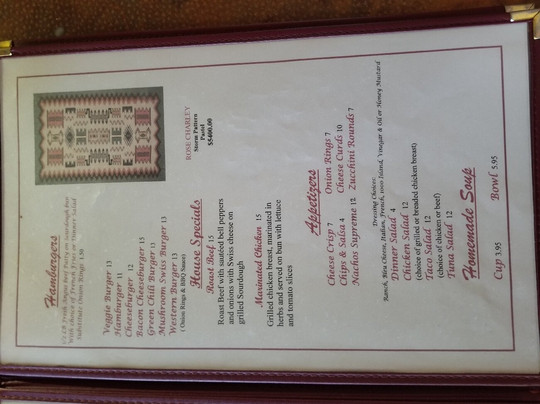 ROSE CHARLEY
Storm Pattern
Pastel
$5400.00
Hamburgers
1/2 LB Fresh Angus Beef Patty on sourdough bun
With choice of French Fries or Dinner Salad
Substitute Onion Rings 1.50
Veggie Burger 13
Hamburger 11
Cheeseburger 12
Bacon Cheeseburger 15
Green Chili Burger 13
Mushroom Swiss Burger 13
Western Burger 13
( Onion Rings & BBQ Sauce)
House Specials
Roast Beef 15
Roast Beef with sautéed bell peppers
and onions with Swiss cheese on
grilled Sourdough
Marinated Chicken 15
Grilled chicken breast, marinated in
herbs and served on bun with lettuce
and tomato slices
Appetizers
Cheese Crisp 7 Onion Rings 7
Chips & Salsa 4 Cheese Curds 10
Nachos Supreme 12 Zucchini Rounds 7
Dressing Choices:
Ranch, Bleu Cheese, Italian, French, 1000 Island, Vinegar & Oil or Honey Mustard
Dinner Salad 4
Chicken Salad 12
(choice of grilled or breaded chicken breast)
Taco Salad 12
(choice of chicken or beef)
Tuna Salad 12
Homemade Soup
Cup 3.95 Bowl 5.95